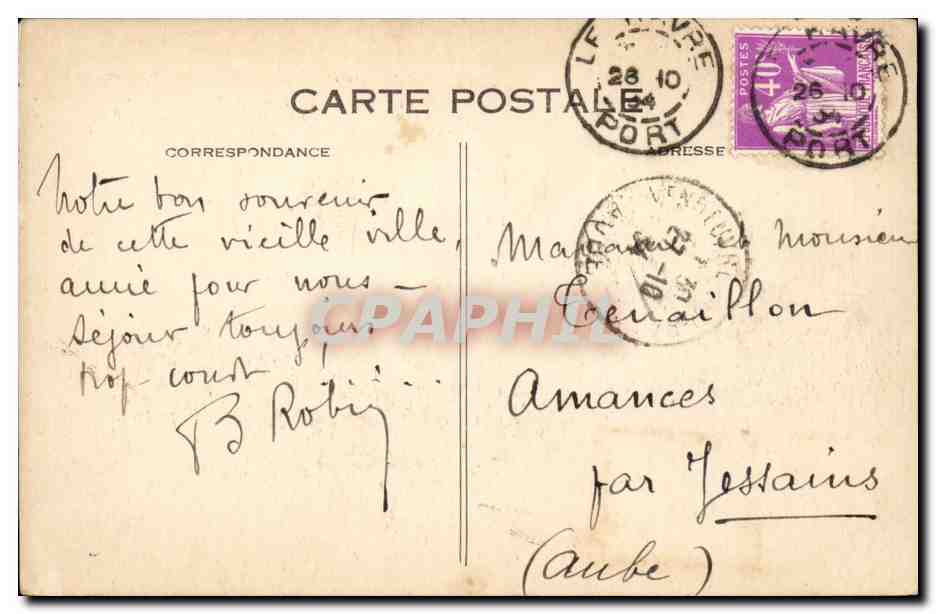 CARTE POSTALE
CORRESPONDANCE
ADRESSE
LE HAVRE
26 10
34
PORT
POSTES
40
HAVRE
26 10
34
PORT
VENDEUVRE
AUBE
Notre bon souvenir
de cette vieille ville,
amie pour nous —
séjour toujours
trop court . . .
B Robin
Madame et Monsieur
Tenaillon
Amances
par Jessains
(Aube)
CPAPHIL